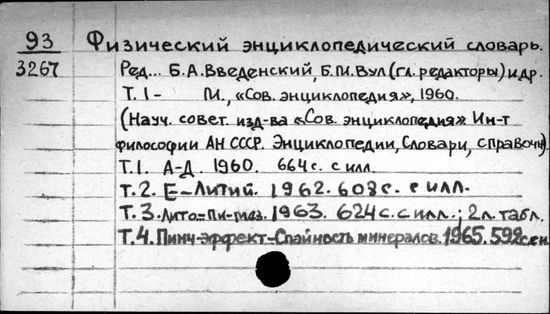 93 Физический энциклопедический словарь.
3267 Ред... Б.А.Введенский, Б.М.Вул (гл. редакторы) и др.
Т. I - М., «Сов. энциклопедия», 1960.
(Науч. совет. изд-ва «Сов. энциклопедия» Ин-т
философии АН СССР. Энциклопедии, Словари, справочн).
Т. I. А-Д. 1960. 664 с. с илл.
Т. 2. Е-Литий. 1962. 608 с. с илл.
Т. 3. 1963. 624 с. с илл.; 2 л. табл.
Т. 4. Пинч-эффект-Спайность минералов. 1965. 592 с.